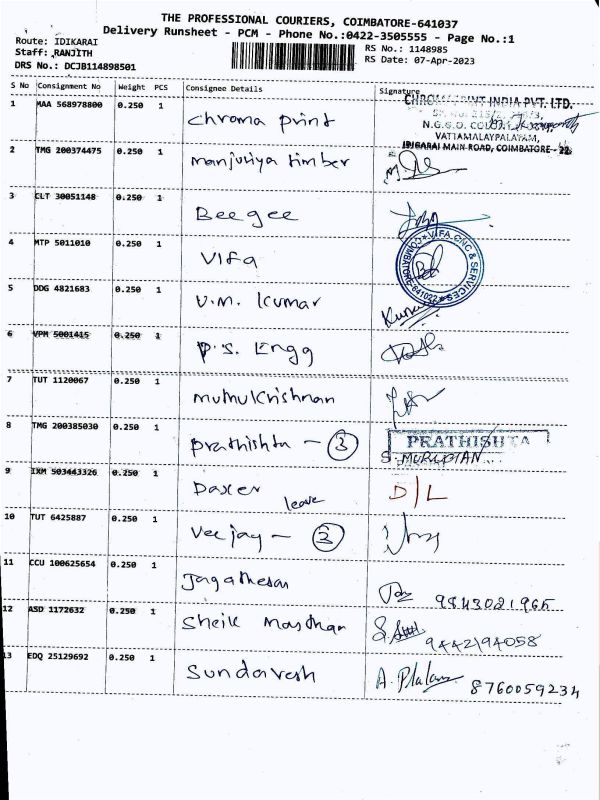 THE PROFESSIONAL COURIERS, COIMBATORE-641037
Delivery Runsheet - PCM - Phone No.:0422-3505555 - Page No.:1
Route: IDIKARAI
Staff: RANJITH
DRS No.: DCJB114898501
RS No.: 1148985
RS Date: 07-Apr-2023
S No Consignment No Weight PCS Consignee Details Signature
1 MAA 568978800 0.250 1 Chroma print
CHROMA PRINT INDIA PVT. LTD.
N.G.G.O. COLONY
VATTAMALAYPALAYAM,
IDIGARAI MAIN ROAD, COIMBATORE - 22
2 TMG 200374475 0.250 1 Manjuliya timber
3 CLT 30051148 0.250 1 Beegee
4 MTP 5011010 0.250 1 Vifa
VIFA CNC & SERVICES
COIMBATORE-641022
5 DDG 4821683 0.250 1 V.M. Kumar
6 VPM 5001415 0.250 1 P.S. Engg
7 TUT 1120067 0.250 1 Muthukrishnan
8 TMG 200385030 0.250 1 Prathishta - 3
PRATHISHTA
S. MURUGIAN
9 IXM 503443326 0.250 1 Daxer leave D/L
10 TUT 6425887 0.250 1 Veejay - 3
11 CCU 100625654 0.250 1 Jagathesan 9843021965
12 ASD 1172632 0.250 1 Sheik Masthan 9442194058
13 EDQ 25129692 0.250 1 Sundaresh 8760059234